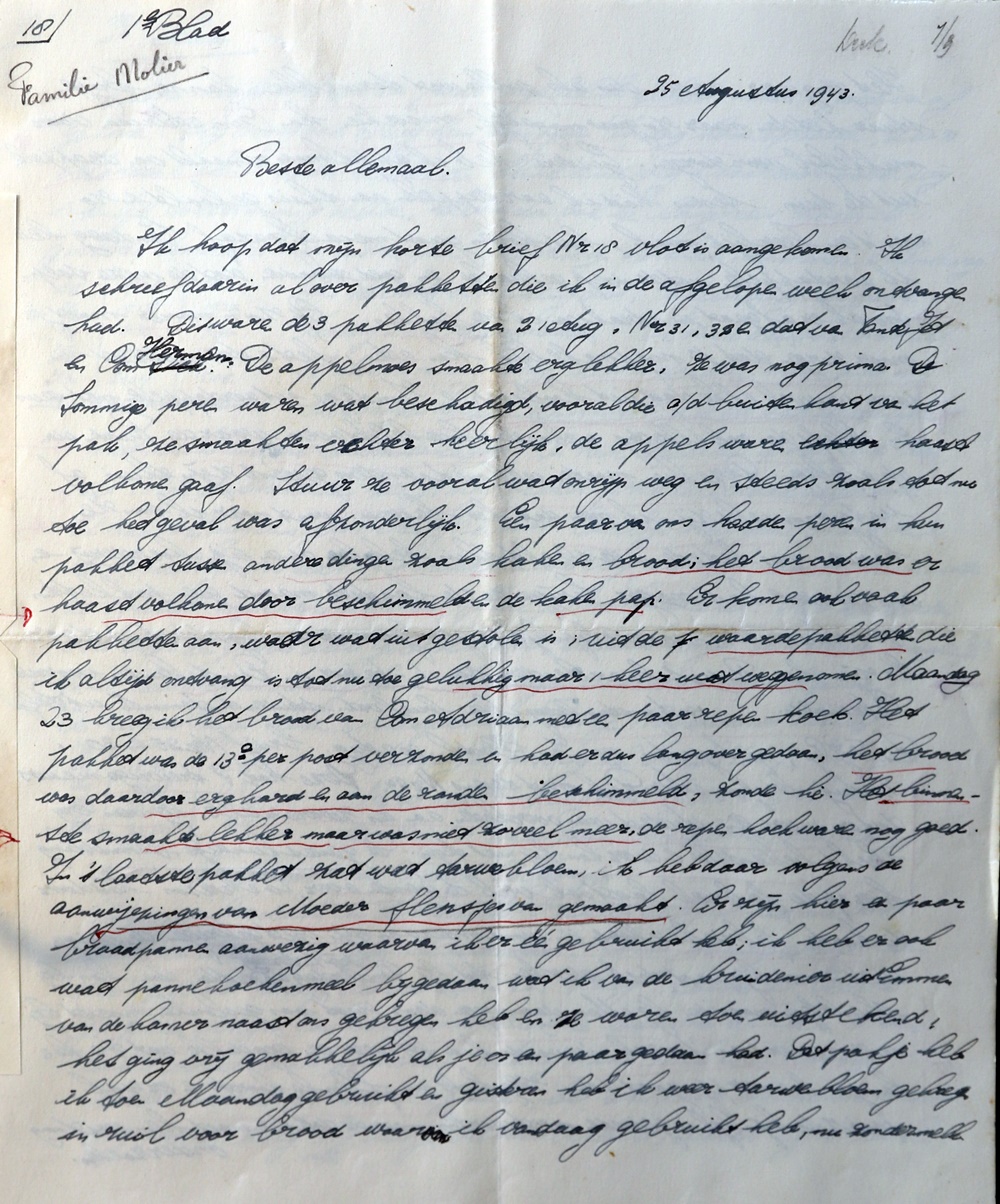 18/ 1e Blad
Familie Molier
7/9
25 Augustus 1943.
Beste allemaal.
Ik hoop dat mijn korte brief Nr 18 vlot is aangekomen. Ik
schreef daarin al over pakketten die ik in de afgelopen week ontvangen
had. Dit waren de 3 pakketten van 21 Aug, Nr 31, 32 en dat van Tante
en Oom Herman. De appelmoes smaakte erg lekker, ze was nog prima. De
Sommige peren waren wat beschadigd, vooral die a/d buitenkant van het
pak, ze smaakten echter heerlijk, de appels waren echter haast
volkomen gaaf. Stuur ze vooral wat onrijp weg en steeds zoals tot nu
toe het geval was afzonderlijk. Een paar van ons hadden peren in hun
pakket tussen andere dingen zoals koeken en brood; het brood was er
haast volkomen door beschimmeld en de koeken pap. Er komen ook vaak
pakketten aan, waar wat uit gestolen is; uit de waardepakketten die
ik altijd ontvang is tot nu toe gelukkig maar 1 keer wat weggenomen. Maandag
23 kreeg ik het brood van Oom Adriaan met een paar repen koek. Het
pakket was de 13e per post verzonden en had er dus lang over gedaan, het brood
was daardoor erg hard en aan de randen beschimmeld, zonde hè. Het binnen-
ste smaakte lekker maar was niet zoveel meer, de repen koek waren nog goed.
In 't laatste pakket zat wat tarwebloem, ik heb daar volgens de
aanwijzingen van Moeder flensjes van gemaakt. Er zijn hier een paar
braadpannen aanwezig waarvan ik er één gebruikt heb; ik heb er ook
wat pannekoekenmeel bijgedaan wat ik van de kruidenier uit Emmen
van de kamer naast ons gekregen heb en ze waren toen uitstekend,
het ging vrij gemakkelijk als je er een paar gedaan had. Dat pakje heb
ik toen Maandag gebruikt en gisteren heb ik weer tarwebloem gekregen
in ruil voor brood waarvan ik vandaag gebruikt heb, nu zonder melk